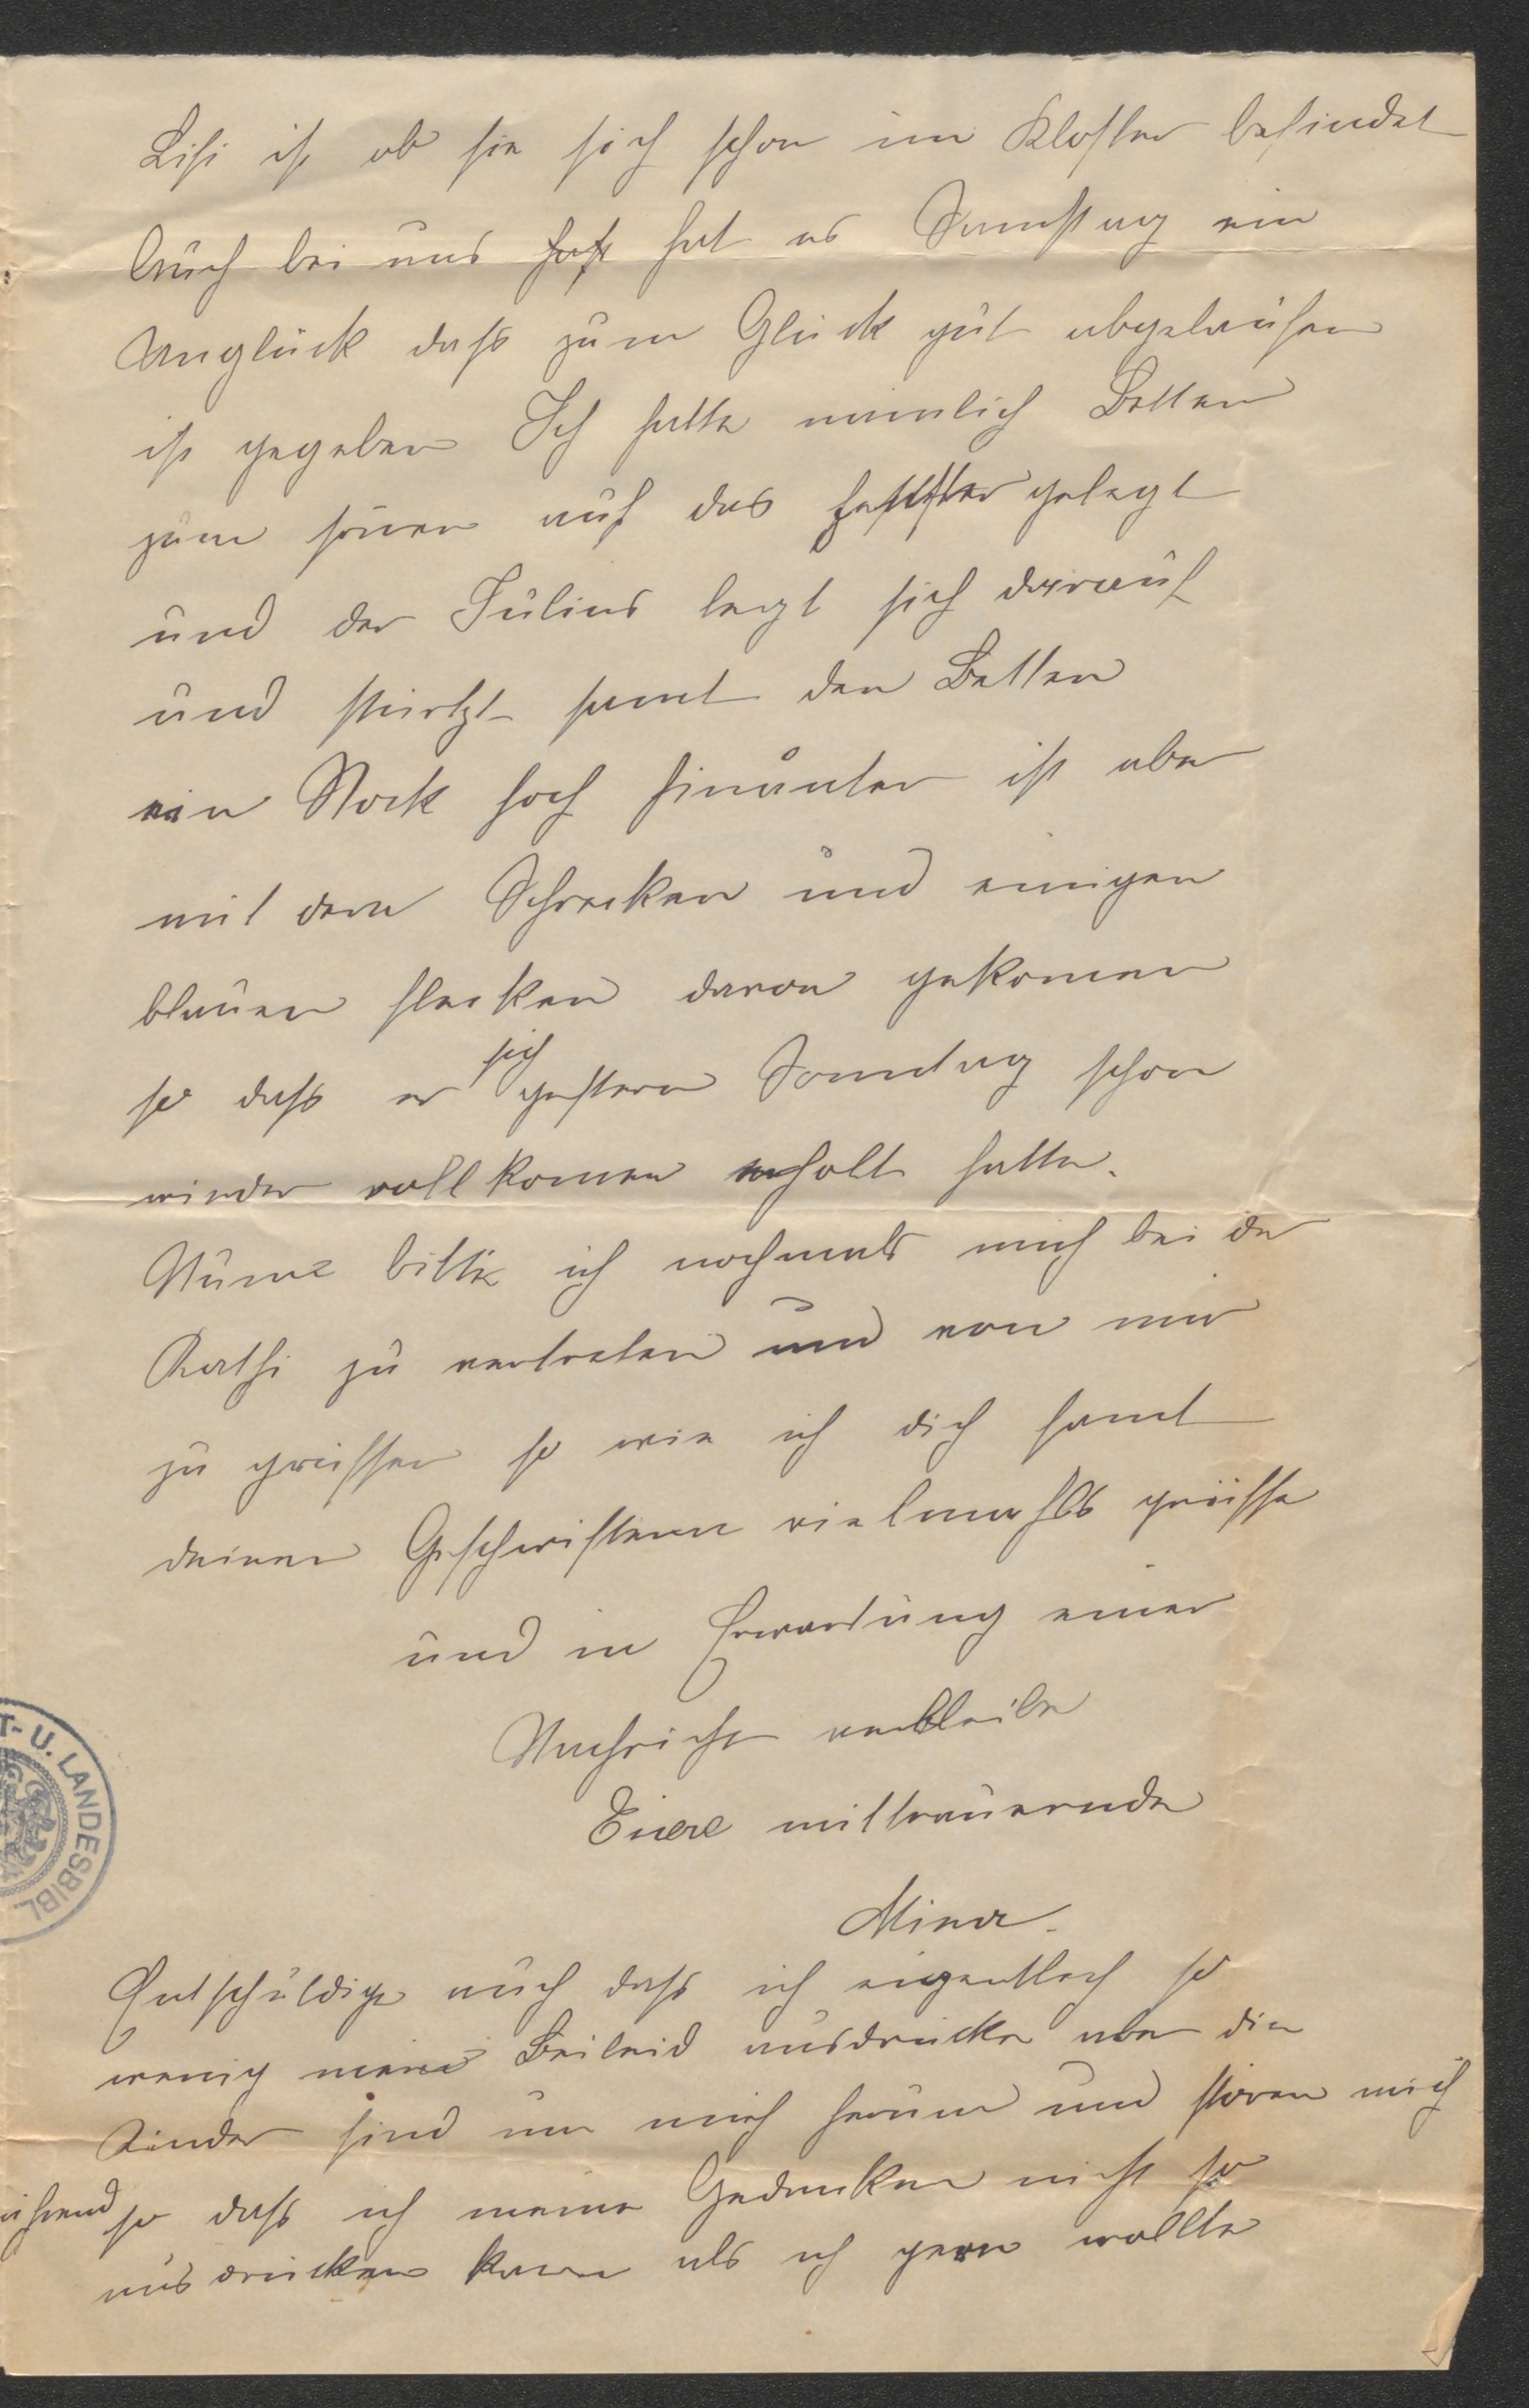 Lisi ist ob sie sich schon im Kloster befindet
Auch bei uns hat es Samstag ein
Unglück dass zum Glück gut abgelaufen
ist gegeben Ich hatte nämlich Betten
zum sönen auf das Fenster gelegt
und der Julius legt sich darauf
und stürtzt samt den Betten
ein Stock hoch hinunter ist aber
mit dem Schrecken und einigen
blauen flecken davon gekomen
so dass er sich gestern Sonntag schon
wieder vollkomen erholt hatte.
Nun bitte ich nochmals mich bei der
Kathi zu vertreten und von mir
zu grüssen so wie ich dich samt
deinen Geschwistern vielmahls grüsse
und in Erwartung einer
Nachricht verbleibe
Eure mittrauernde
Mina.
Entschuldige auch dass ich eigentlich so
wenig mein Beileid ausdrücke aber die
Kinder sind um mich herum und stören mich
so dass ich meine Gedanken nicht so
ausdrücken kann als ich gern wollte
T- U. LANDESBIBL.